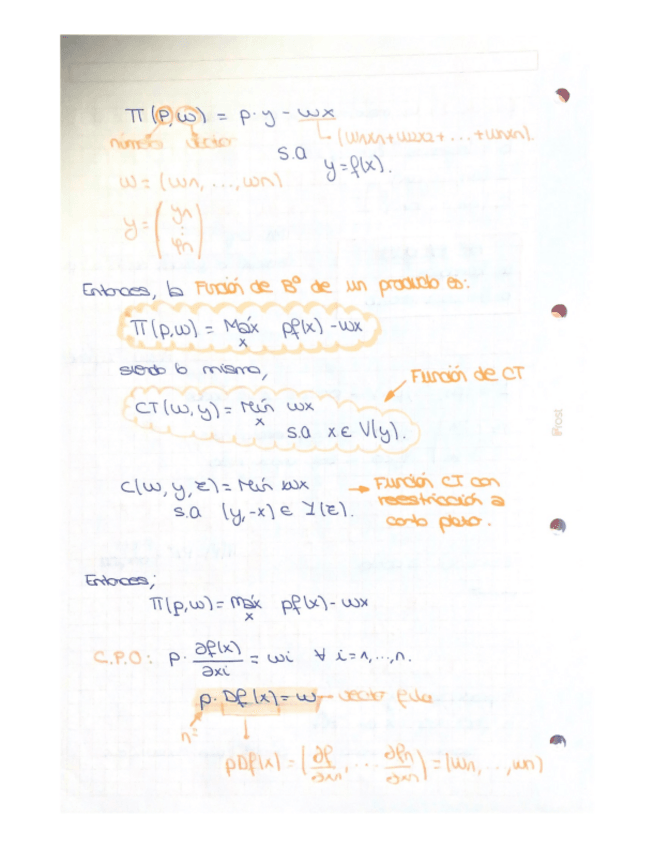 π(p,w) = p·y - wx
número vector
(w1x1+w2x2+...+wnxn).
s.a y=f(x).
w=(w1,...,wn)
y=(y1 ⋮ yn)
Entonces, la Función de Bº de un producto es:
π(p,w) = Máx pf(x)-wx
x
siendo lo mismo,
Función de CT
CT(w,y)= Mín wx
x
s.a x∈V(y).
C(w,y,z)= Mín wx → Función CT con
s.a (y,-x)∈Y(z). reestricción a
corto plazo.
Entonces;
π(p,w)= máx pf(x)-wx
x
C.P.O: p· ∂f(x)/∂xi = wi ∀ i=1,...,n.
p·Df(x)=w → vector fila
nº
pDf(x)=(∂f/∂x1,... ∂fn/∂xn)=(w1,...,wn)
iFrost